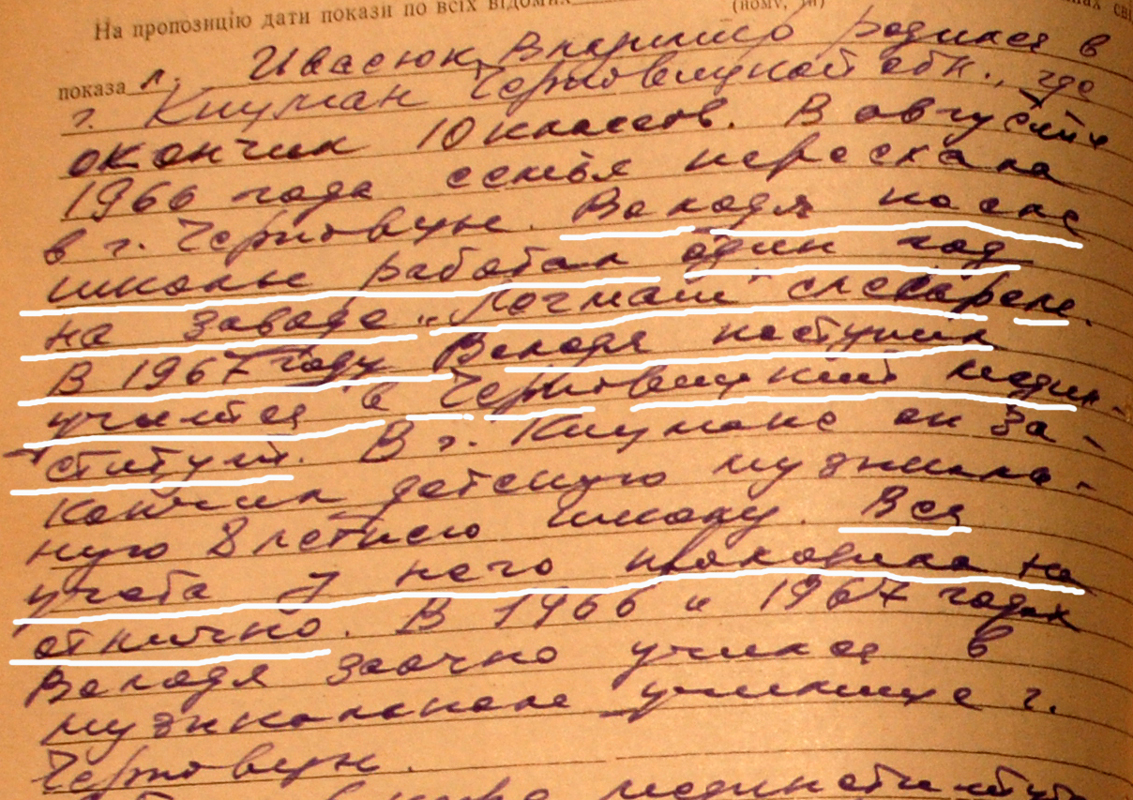 На пропозицію дати покази по всіх відомих (йому, їй)
показа л. Ивасюк Владимир родился в
г. Кицман Черновицкой обл., где
окончил 10 классов. В августе
1966 года семья переехала
в г. Черновцы. Володя после
школы работал один год
на заводе „Легмаш" слесарем.
В 1967 году Володя поступил
учиться в Черновицкий медин-
ститут. В г. Кицмане он за-
кончил детскую музыкаль-
ную 8 летнюю школу. Вся
учеба у него проходила на
отлично. В 1966 и 1967 годах
Володя заочно учился в
музыкальном училище г.
Черновцы.